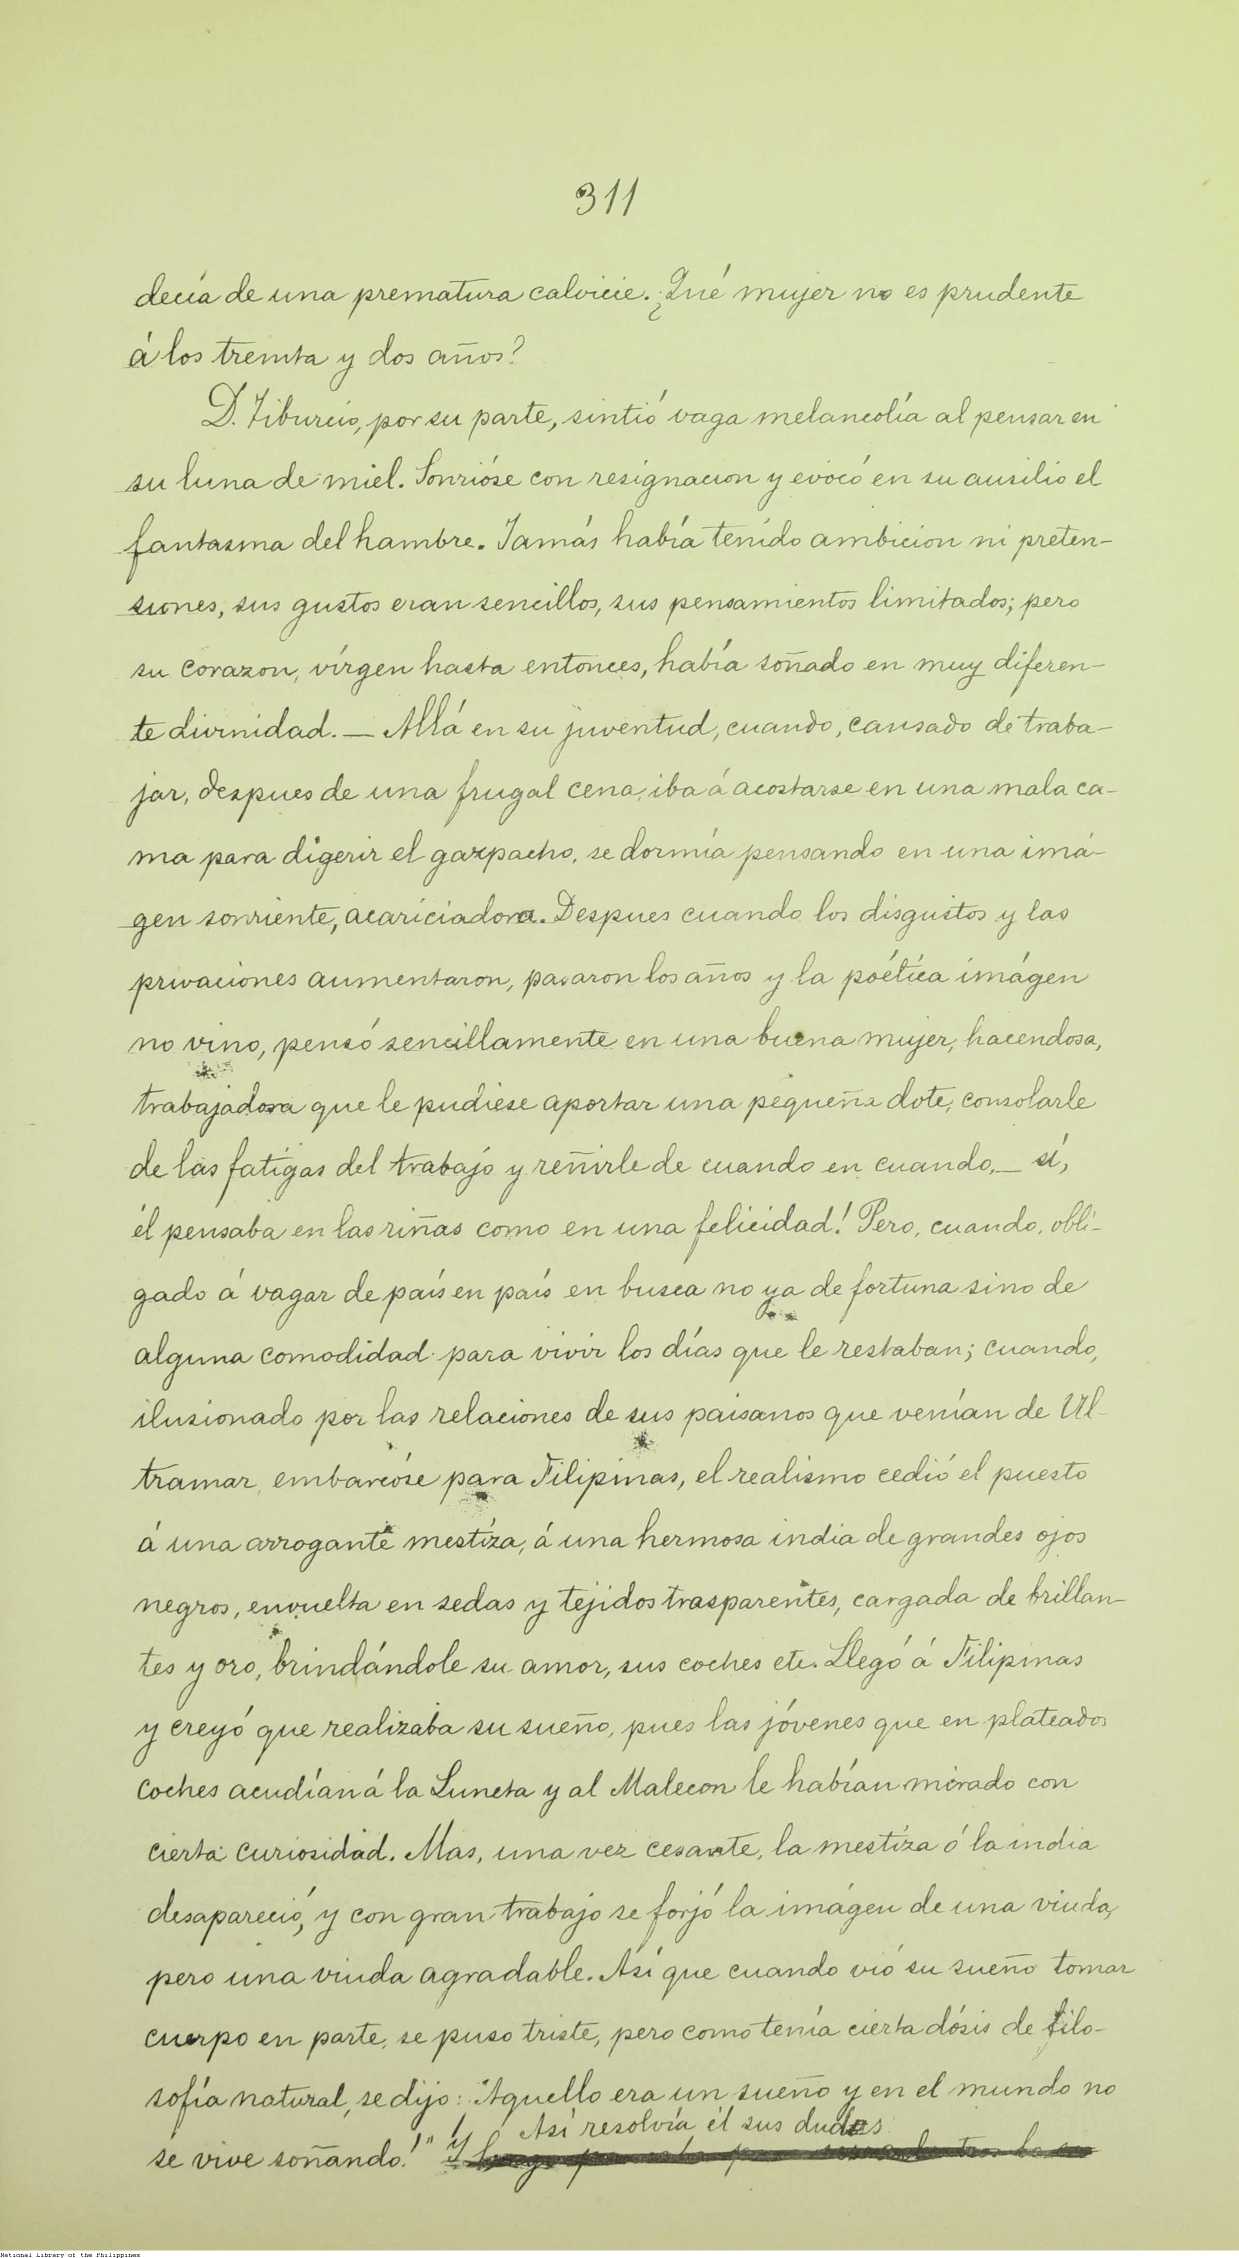 311
decía de una prematura calvicie. ¿Qué mujer no es prudente
á los treinta y dos años?
D. Tiburcio, por su parte, sintió vaga melancolía al pensar en
su luna de miel. Sonrióse con resignacion y evocó en su ausilio el
fantasma del hambre. Jamás había tenido ambicion ni preten-
siones, sus gustos eran sencillos, sus pensamientos limitados; pero
su corazon, vírgen hasta entonces, había soñado en muy diferen-
te divinidad. — Allá en su juventud, cuando, cansado de traba-
jar, despues de una frugal cena, iba á acostarse en una mala ca-
ma para digerir el gazpacho, se dormía pensando en una imá-
gen sonriente, acariciadora. Despues cuando los disgustos y las
privaciones aumentaron, pasaron los años y la poética imágen
no vino, pensó sencillamente en una buena mujer, hacendosa,
trabajadora que le pudiese aportar una pequeña dote, consolarle
de las fatigas del trabajo y reñirle de cuando en cuando, — sí,
él pensaba en las riñas como en una felicidad! Pero, cuando, obli-
gado á vagar de país en país en busca no ya de fortuna sino de
alguna comodidad para vivir los días que le restaban; cuando,
ilusionado por las relaciones de sus paisanos que venían de Ul-
tramar, embarcóse para Filipinas, el realismo cedió el puesto
á una arrogante mestiza, á una hermosa india de grandes ojos
negros, envuelta en sedas y tejidos trasparentes, cargada de brillan-
tes y oro, brindándole su amor, sus coches etc. Llegó á Filipinas
y creyó que realizaba su sueño, pues las jóvenes que en plateados
coches acudían á la Luneta y al Malecon le habían mirado con
cierta curiosidad. Mas, una vez cesante, la mestiza ó la india
desapareció, y con gran trabajo se forjó la imágen de una viuda,
pero una viuda agradable. Así que cuando vió su sueño tomar
cuerpo en parte, se puso triste, pero como tenía cierta dósis de filo-
sofía natural, se dijo: "Aquello era un sueño y en el mundo no
Así resolvía él sus dudas
se vive soñando!" Y
National Library of the Philippines